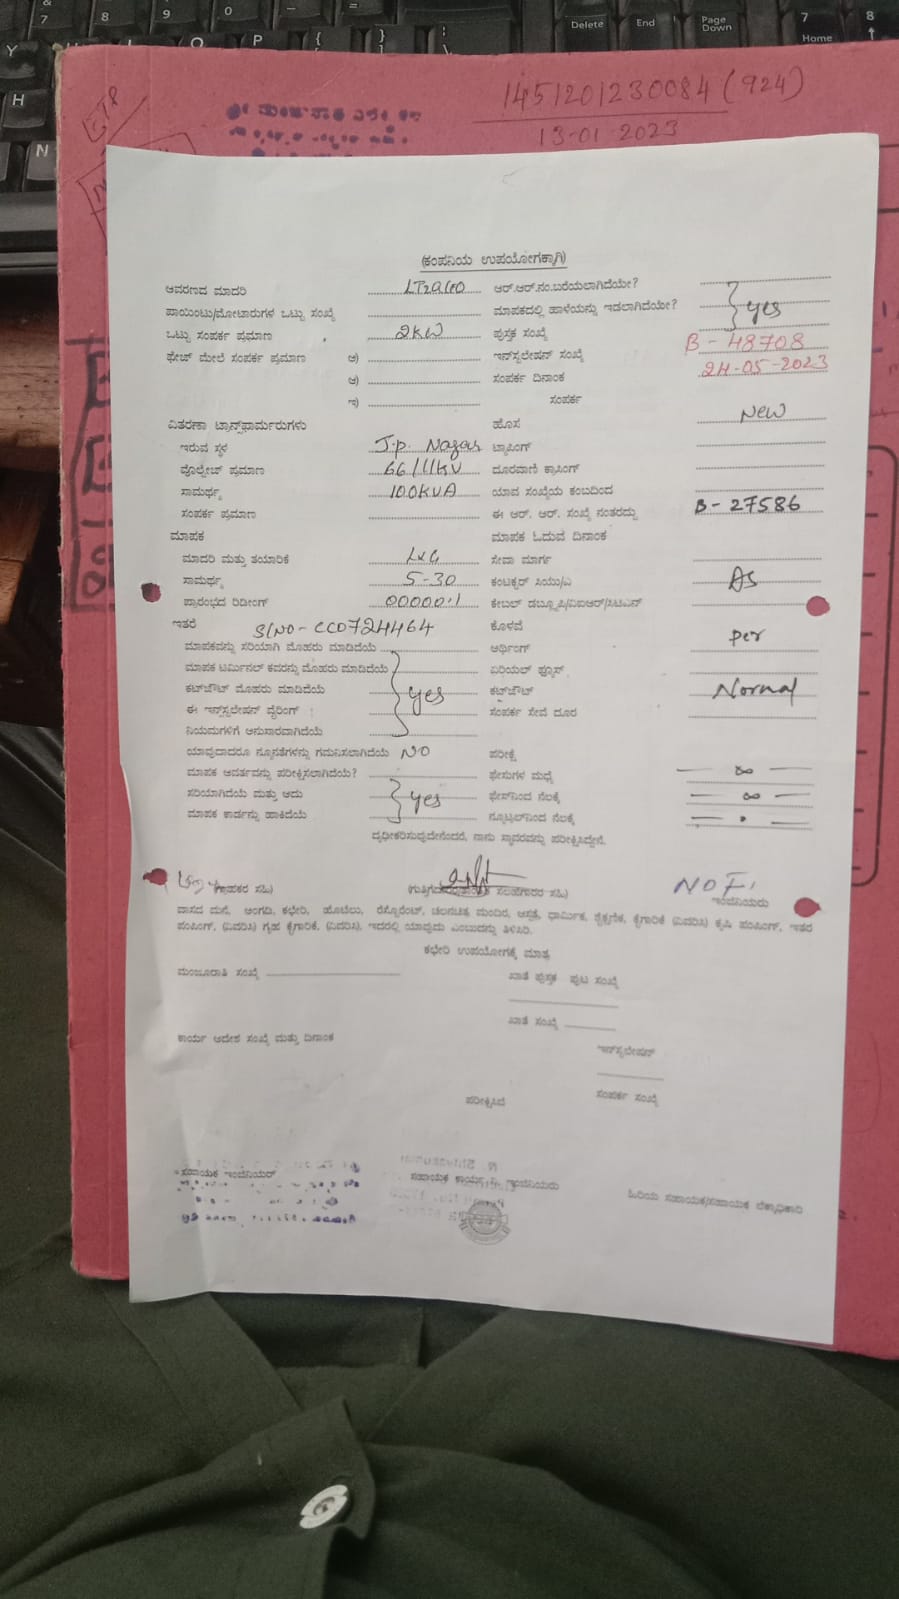 1451201230084 (924)
13-01-2023
(ಕಂಪನಿಯ ಉಪಯೋಗಕ್ಕಾಗಿ)
ಆವರಣದ ಮಾದರಿ ಆರ್.ಆರ್.ನಂ.ಬರೆಯಲಾಗಿದೆಯೇ?
ಪಾಯಿಂಟು/ಮೋಟಾರುಗಳ ಒಟ್ಟು ಸಂಖ್ಯೆ ಮಾಪಕದಲ್ಲಿ ಹಾಳೆಯನ್ನು ಇಡಲಾಗಿದೆಯೇ? yes
ಒಟ್ಟು ಸಂಪರ್ಕ ಪ್ರಮಾಣ 2KW ಪುಸ್ತಕ ಸಂಖ್ಯೆ
ಫೇಜ್ ಮೇಲೆ ಸಂಪರ್ಕ ಪ್ರಮಾಣ ಅ) ಇನ್‌ಸ್ಟಲೇಷನ್ ಸಂಖ್ಯೆ B-48708
ಆ) ಸಂಪರ್ಕ ದಿನಾಂಕ 24-05-2023
ಇ) ಸಂಪರ್ಕ
ವಿತರಣಾ ಟ್ರಾನ್ಸ್‌ಫಾರ್ಮರುಗಳು ಹೊಸ New
ಇರುವ ಸ್ಥಳ J.p. Nagar ಟ್ಯಾಪಿಂಗ್
ವೊಲ್ಟೇಜ್ ಪ್ರಮಾಣ 66/11KV ದೂರವಾಣಿ ಕ್ರಾಸಿಂಗ್
ಸಾಮರ್ಥ್ಯ 100KVA ಯಾವ ಸಂಖ್ಯೆಯ ಕಂಬದಿಂದ
ಸಂಪರ್ಕ ಪ್ರಮಾಣ ಈ ಆರ್. ಆರ್. ಸಂಖ್ಯೆ ನಂತರದ್ದು B-27586
ಮಾಪಕ ಮಾಪಕ ಓದುವ ದಿನಾಂಕ
ಮಾದರಿ ಮತ್ತು ತಯಾರಿಕೆ L&G ಸೇವಾ ಮಾರ್ಗ
ಸಾಮರ್ಥ್ಯ 5-30 ಕಂಟಕ್ಟರ್ ಸಿಯು/ಎ As
ಪ್ರಾರಂಭದ ರಿಡೀಂಗ್ 00000.1 ಕೇಬಲ್
ಇತರೆ S/NO-CC0724464 ಕೊಳವೆ
ಮಾಪಕವನ್ನು ಸರಿಯಾಗಿ ಮೊಹರು ಮಾಡಿದೆಯೆ ಅರ್ಥಿಂಗ್ per
ಮಾಪಕ ಟರ್ಮಿನಲ್ ಕವರನ್ನು ಮೊಹರು ಮಾಡಿದೆಯೆ ಏರಿಯಲ್ ಫ್ಯೂಸ್
ಕಟ್‌ಔಟ್ ಮೊಹರು ಮಾಡಿದೆಯೆ yes ಕಟ್‌ಔಟ್ Normal
ಈ ಇನ್‌ಸ್ಟಲೇಷನ್ ವೈರಿಂಗ್ ಸಂಪರ್ಕ ಸೇವೆ ದೂರ
ನಿಯಮಗಳಿಗೆ ಅನುಸಾರವಾಗಿದೆಯೆ
ಯಾವುದಾದರೂ ನ್ಯೂನತೆಗಳನ್ನು ಗಮನಿಸಲಾಗಿದೆಯೆ NO ಪರೀಕ್ಷೆ
ಮಾಪಕ ಆವರ್ತವನ್ನು ಪರೀಕ್ಷಿಸಲಾಗಿದೆಯೆ? ಫೇಸುಗಳ ಮಧ್ಯೆ — ∞ —
ಸರಿಯಾಗಿದೆಯೆ ಮತ್ತು ಅದು yes ಫೇಸ್‌ನಿಂದ ನೆಲಕ್ಕೆ — ∞ —
ಮಾಪಕ ಕಾರ್ಡನ್ನು ಹಾಕಿದೆಯೆ ನ್ಯೂಟ್ರಲ್‌ನಿಂದ ನೆಲಕ್ಕೆ
ದೃಢೀಕರಿಸುವುದೇನೆಂದರೆ, ನಾನು ಸ್ಥಾವರವನ್ನು ಪರೀಕ್ಷಿಸಿದ್ದೇನೆ.
(ಗ್ರಾಹಕರ ಸಹಿ) ಸಲಹೆಗಾರರ ಸಹಿ) ಇಂಜಿನಿಯರು
ವಾಸದ ಮನೆ, ಅಂಗಡಿ, ಕಛೇರಿ, ಹೊಟೆಲು, ರೆಸ್ಟೊರೆಂಟ್, ಚಲನಚಿತ್ರ ಮಂದಿರ, ಆಸ್ಪತ್ರೆ, ಧಾರ್ಮಿಕ, ಶೈಕ್ಷಣಿಕ, ಕೈಗಾರಿಕೆ (ವಿವರಿಸಿ) ಕೃಷಿ ಪಂಪಿಂಗ್, ಇತರ
ಪಂಪಿಂಗ್, (ವಿವರಿಸಿ) ಗೃಹ ಕೈಗಾರಿಕೆ, (ವಿವರಿಸಿ), ಇದರಲ್ಲಿ ಯಾವುದು ಎಂಬುದನ್ನು ತಿಳಿಸಿರಿ.
ಕಛೇರಿ ಉಪಯೋಗಕ್ಕೆ ಮಾತ್ರ
ಮಂಜೂರಾತಿ ಸಂಖ್ಯೆ ಖಾತೆ ಪುಸ್ತಕ ಪುಟ ಸಂಖ್ಯೆ
ಖಾತೆ ಸಂಖ್ಯೆ
ಕಾರ್ಯ ಆದೇಶ ಸಂಖ್ಯೆ ಮತ್ತು ದಿನಾಂಕ ಇನ್‌ಸ್ಟಲೇಷನ್
ಪರೀಕ್ಷಿಸಿದೆ ಸಂಪರ್ಕ ಸಂಖ್ಯೆ
ಸಹಾಯಕ ಇಂಜಿನಿಯರ್ ಸಹಾಯಕ ಇಂಜಿನಿಯರು ಹಿರಿಯ ಸಹಾಯಕ/ಸಹಾಯಕ ಲೆಕ್ಕಾಧಿಕಾರಿ